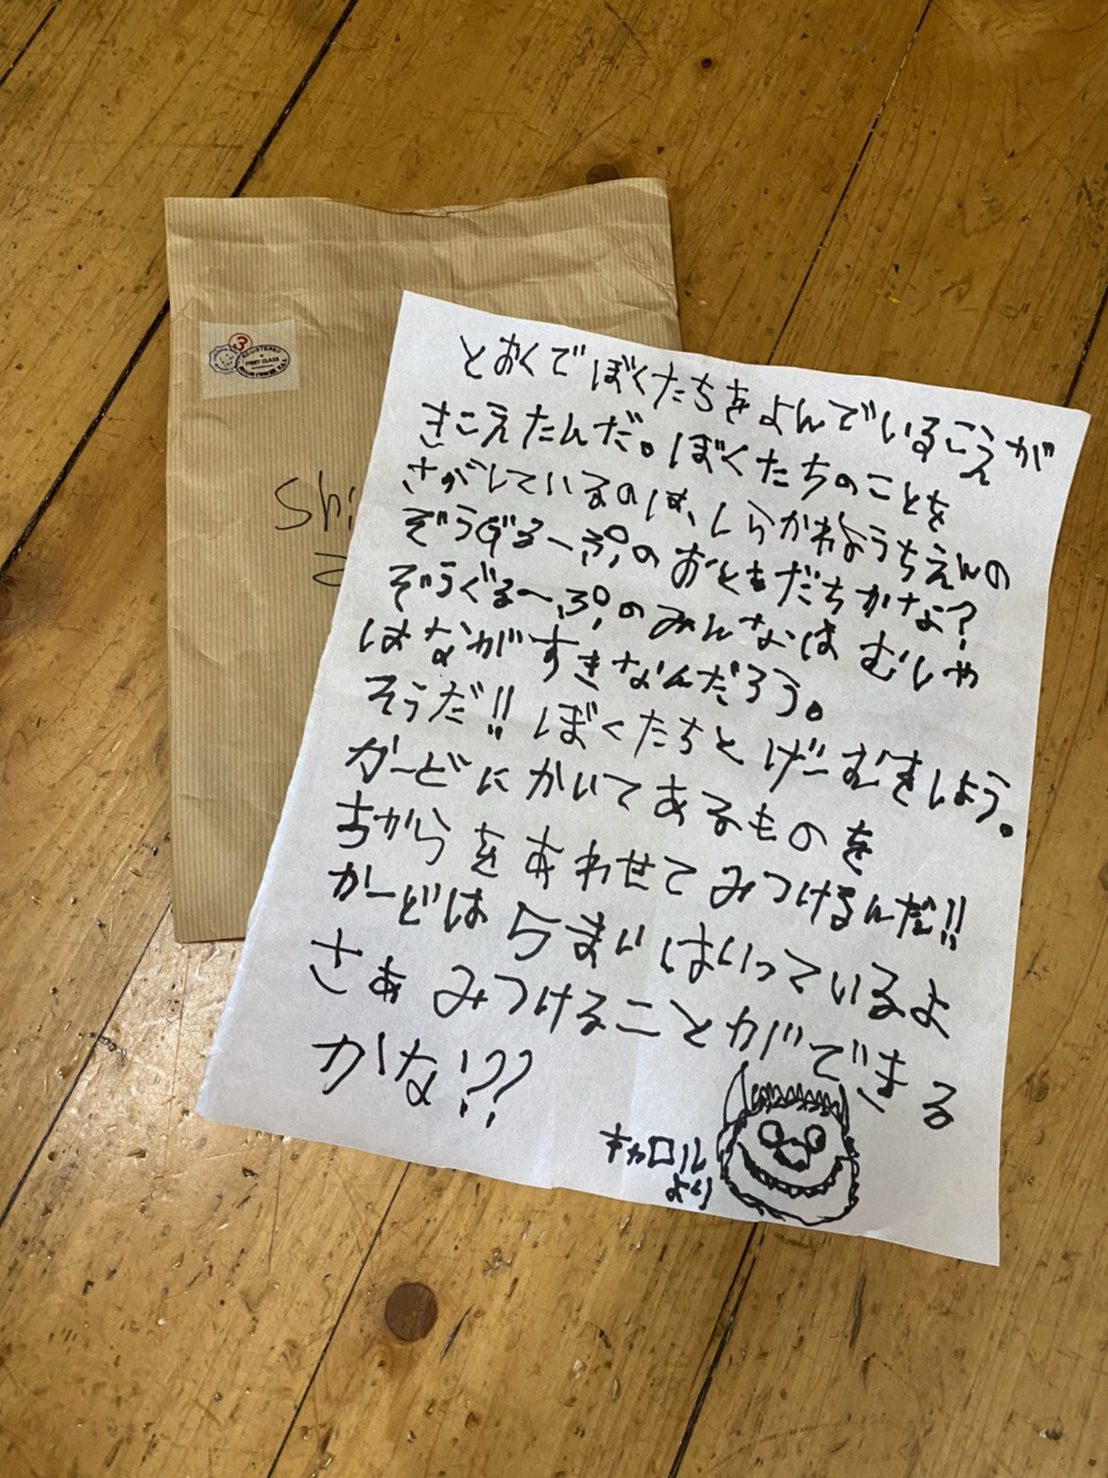 REGISTERED
FIRST CLASS
Shi
とおくでぼくたちをよんでいるこえが
きこえたんだ。ぼくたちのことを
さがしているのは、しらかわようちえんの
ぞうぐるーぷのおともだちかな?
ぞうぐるーぷのみんなは むしや
はながすきなんだろう。
そうだ!! ぼくたちと げーむをしよう。
かーどにかいてあるものを
ちからをあわせてみつけるんだ!!
かーどは 5まい はいっているよ
さあ みつけることができる
かな!??
キャロル
より